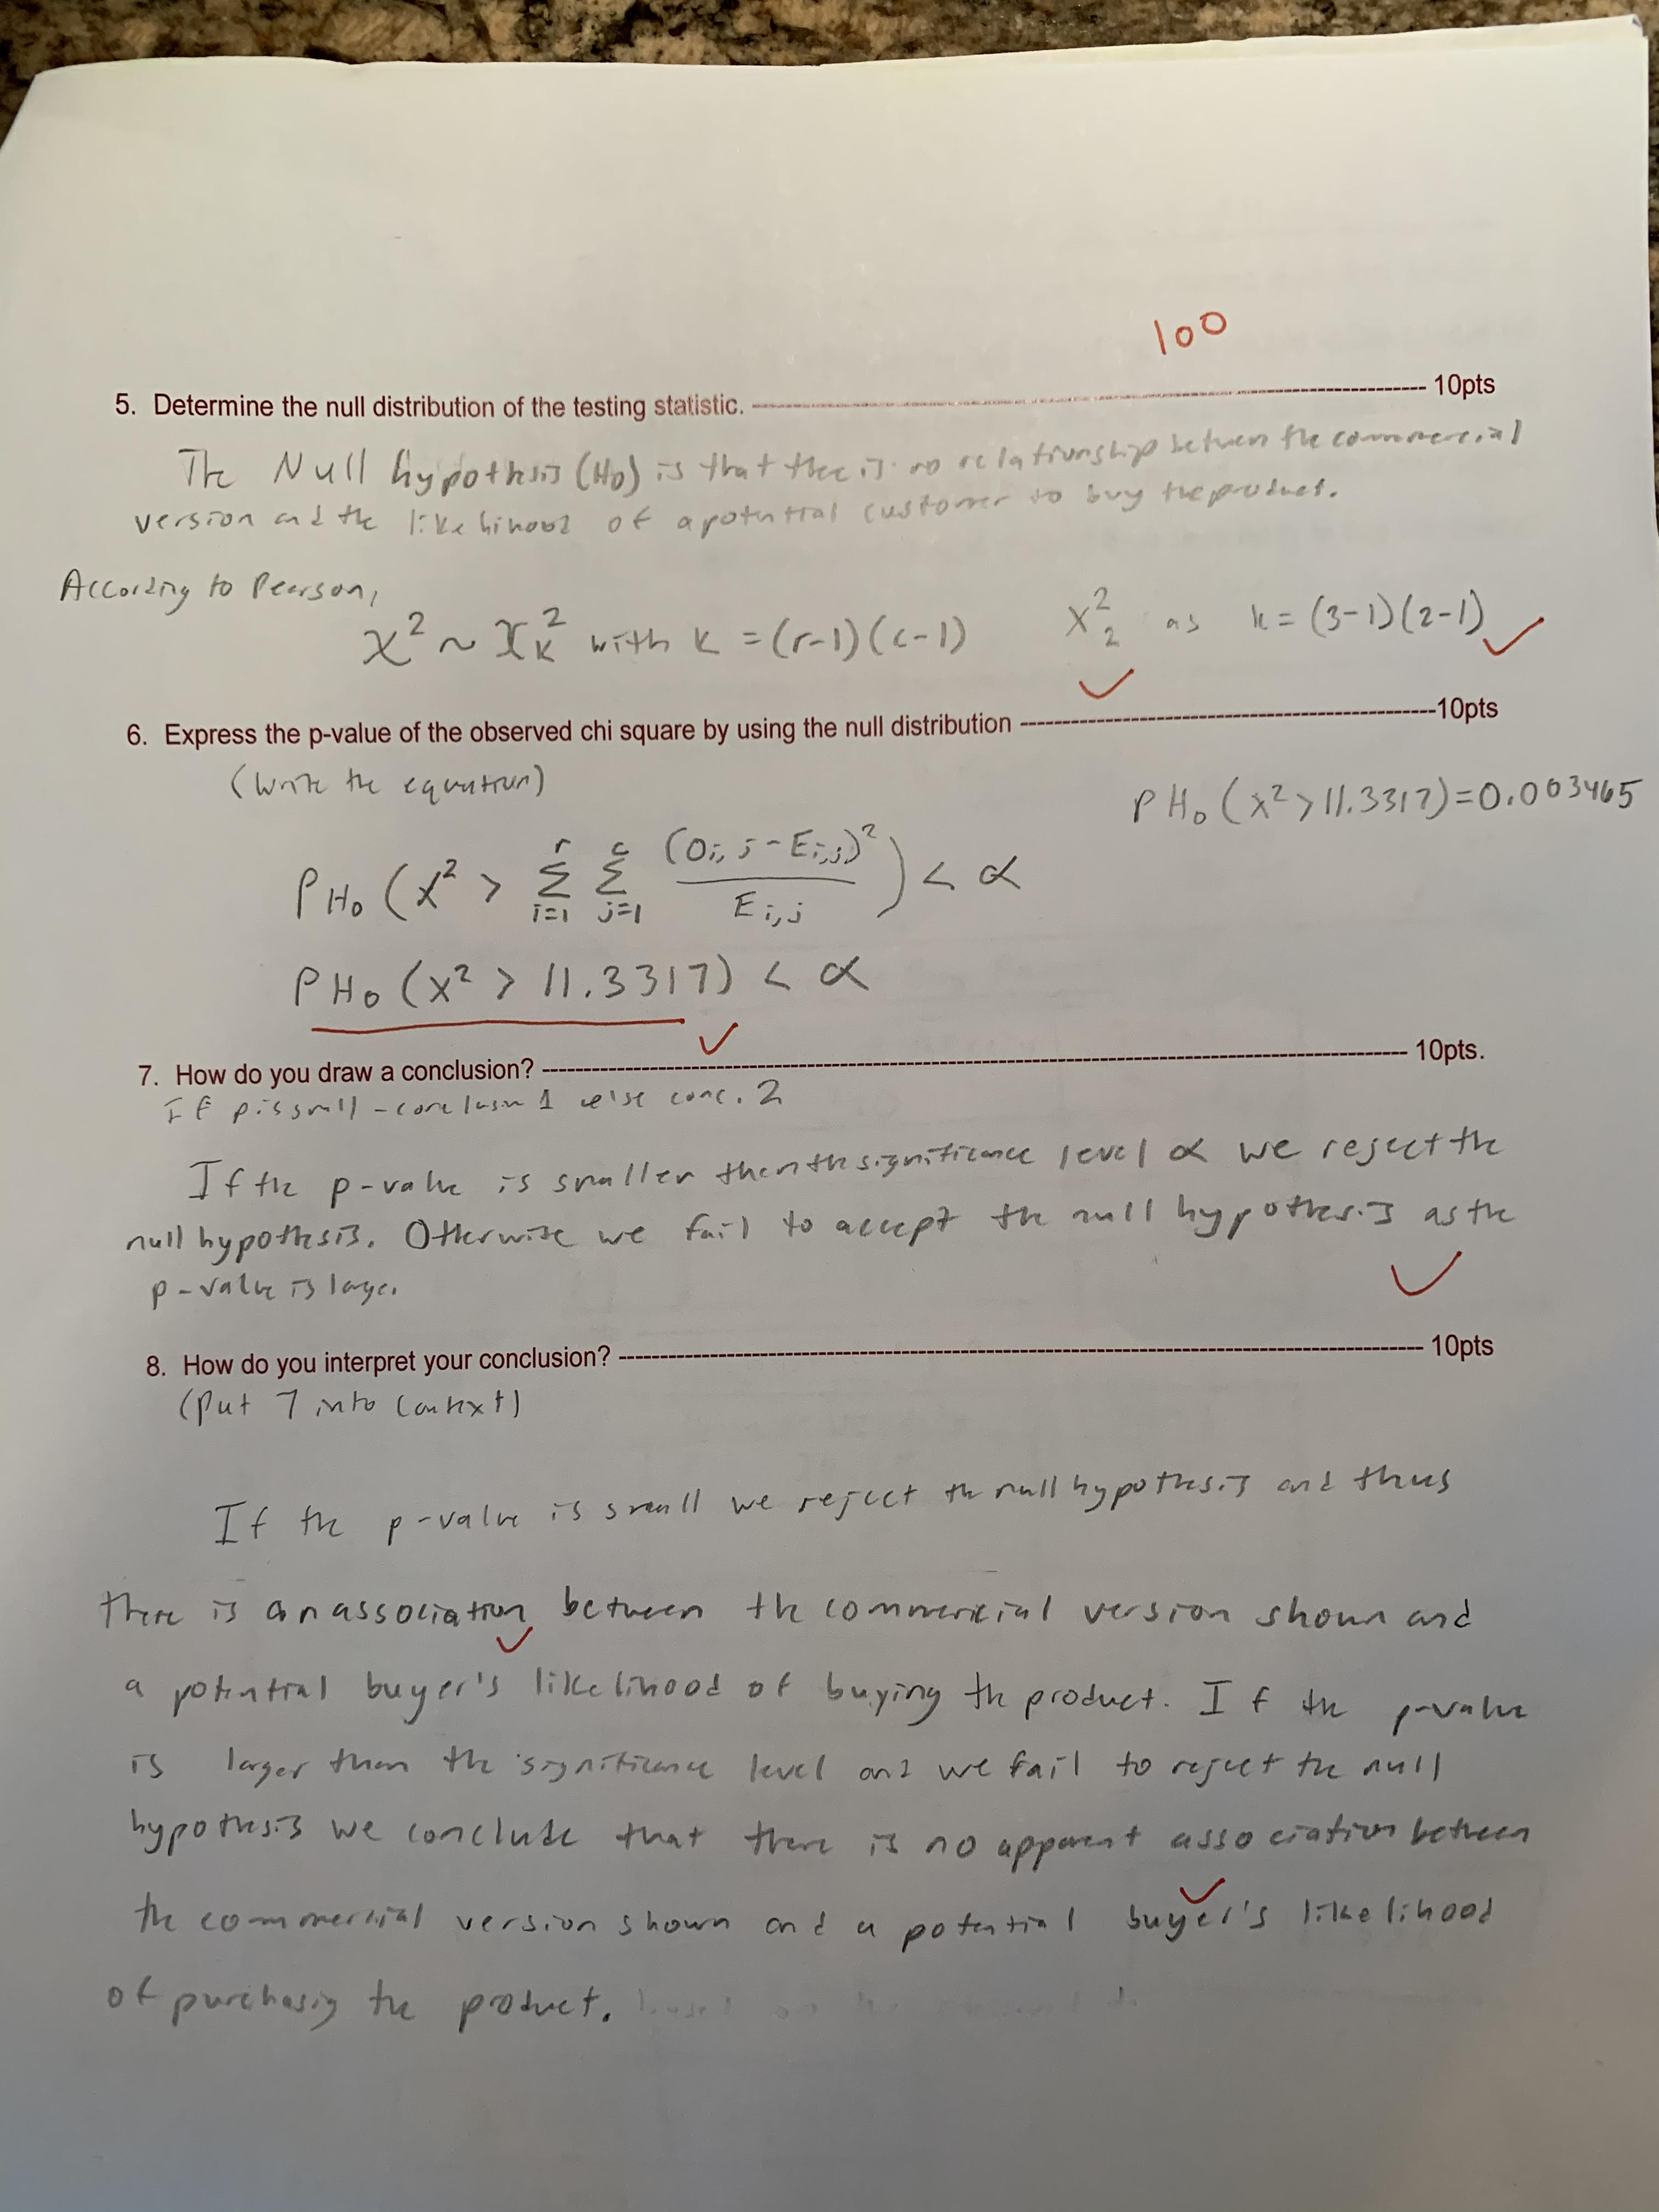 100
5. Determine the null distribution of the testing statistic. ---------- 10pts
The Null hypothesis (H₀) is that there is no relationship between the commercial
version and the likelihood of a potential customer to buy the product.
According to Pearson,
χ² ~ χ²ₖ with k = (r-1)(c-1) χ²₂ as k = (3-1)(2-1)
6. Express the p-value of the observed chi square by using the null distribution ----------10pts
(Write the equation)
P H₀ (x² > 11.3317) = 0.003465
P H₀ (x² > Σ r i=1 Σ c j=1 (Oi,j - Ei,j)² / Ei,j) < α
P H₀ (x² > 11.3317) < α
7. How do you draw a conclusion? ---------- 10pts.
If p is small - conclusion 1 else conc. 2
If the p-value is smaller then the significance level α we reject the
null hypothesis. Otherwise we fail to accept the null hypothesis as the
p-value is large.
8. How do you interpret your conclusion? ---------- 10pts
(Put 7 into context)
If the p-value is small we reject the null hypothesis and thus
there is an association between the commericial version shown and
a potential buyer's likelihood of buying the product. If the p-value
is larger than the significance level and we fail to reject the null
hypothesis we conclude that there is no apparent association between
the commercial version shown and a potential buyer's likelihood
of purchasing the product.